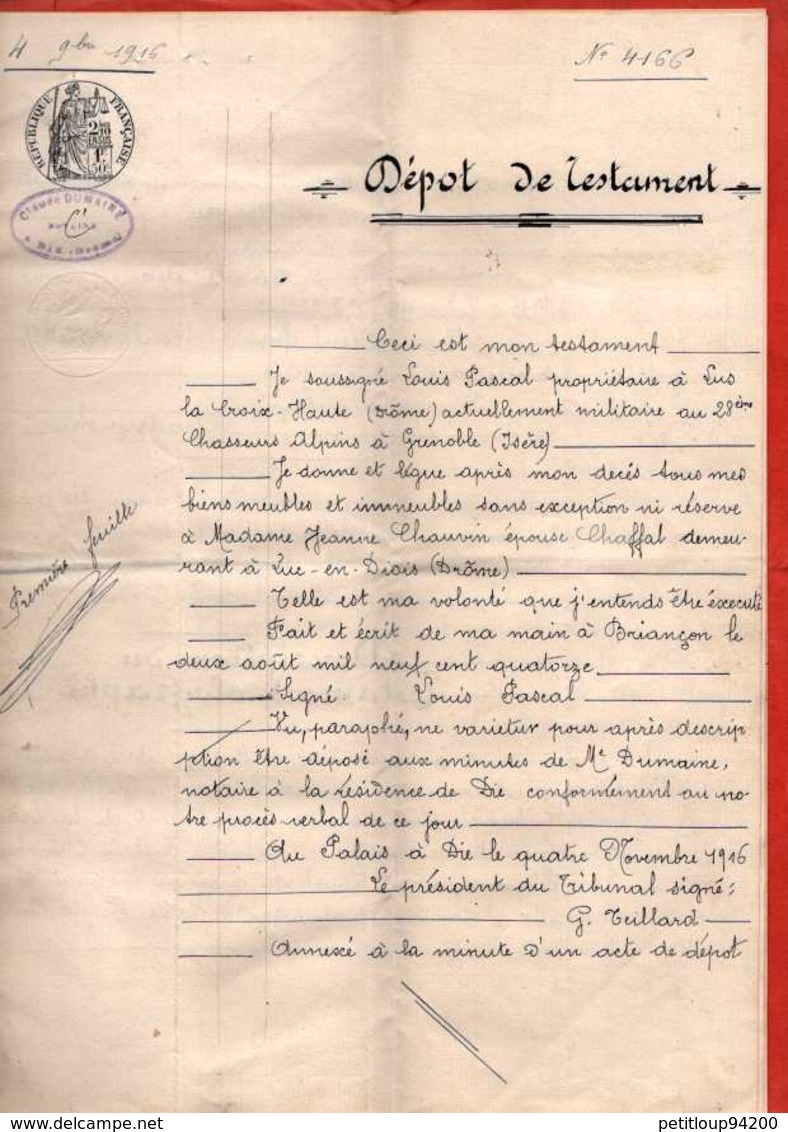 4 9bre 1916
N° 4166
RÉPUBLIQUE FRANÇAISE
Claude DUMAINE
Dépot de Testament
Ceci est mon testament
Je soussigné Louis Pascal propriétaire à Lus
la Croix-Haute (Drôme) actuellement militaire au 28ème
Chasseurs Alpins à Grenoble (Isère)
Je donne et lègue après mon decés tous mes
biens meubles et immeubles sans exception ni réserve
à Madame Jeanne Chauvin épouse Chaffal demeu-
rant à Luc-en-Diois (Drôme)
Telle est ma volonté que j'entends être éxecuté
Fait et écrit de ma main à Briançon le
deux août mil neuf cent quatorze
Signé Louis Pascal
Vu, paraphé, ne varietur pour après descrip
ption être déposé aux minutes de Me Dumaine,
notaire à la résidence de Die conformément au no-
tre procès verbal de ce jour
Au Palais à Die le quatre Novembre 1916
Le président du Tribunal signé:
G. Teillard
Annexé à la minute d'un acte de dépot
Première feuille
delcampe.net
petitloup94200